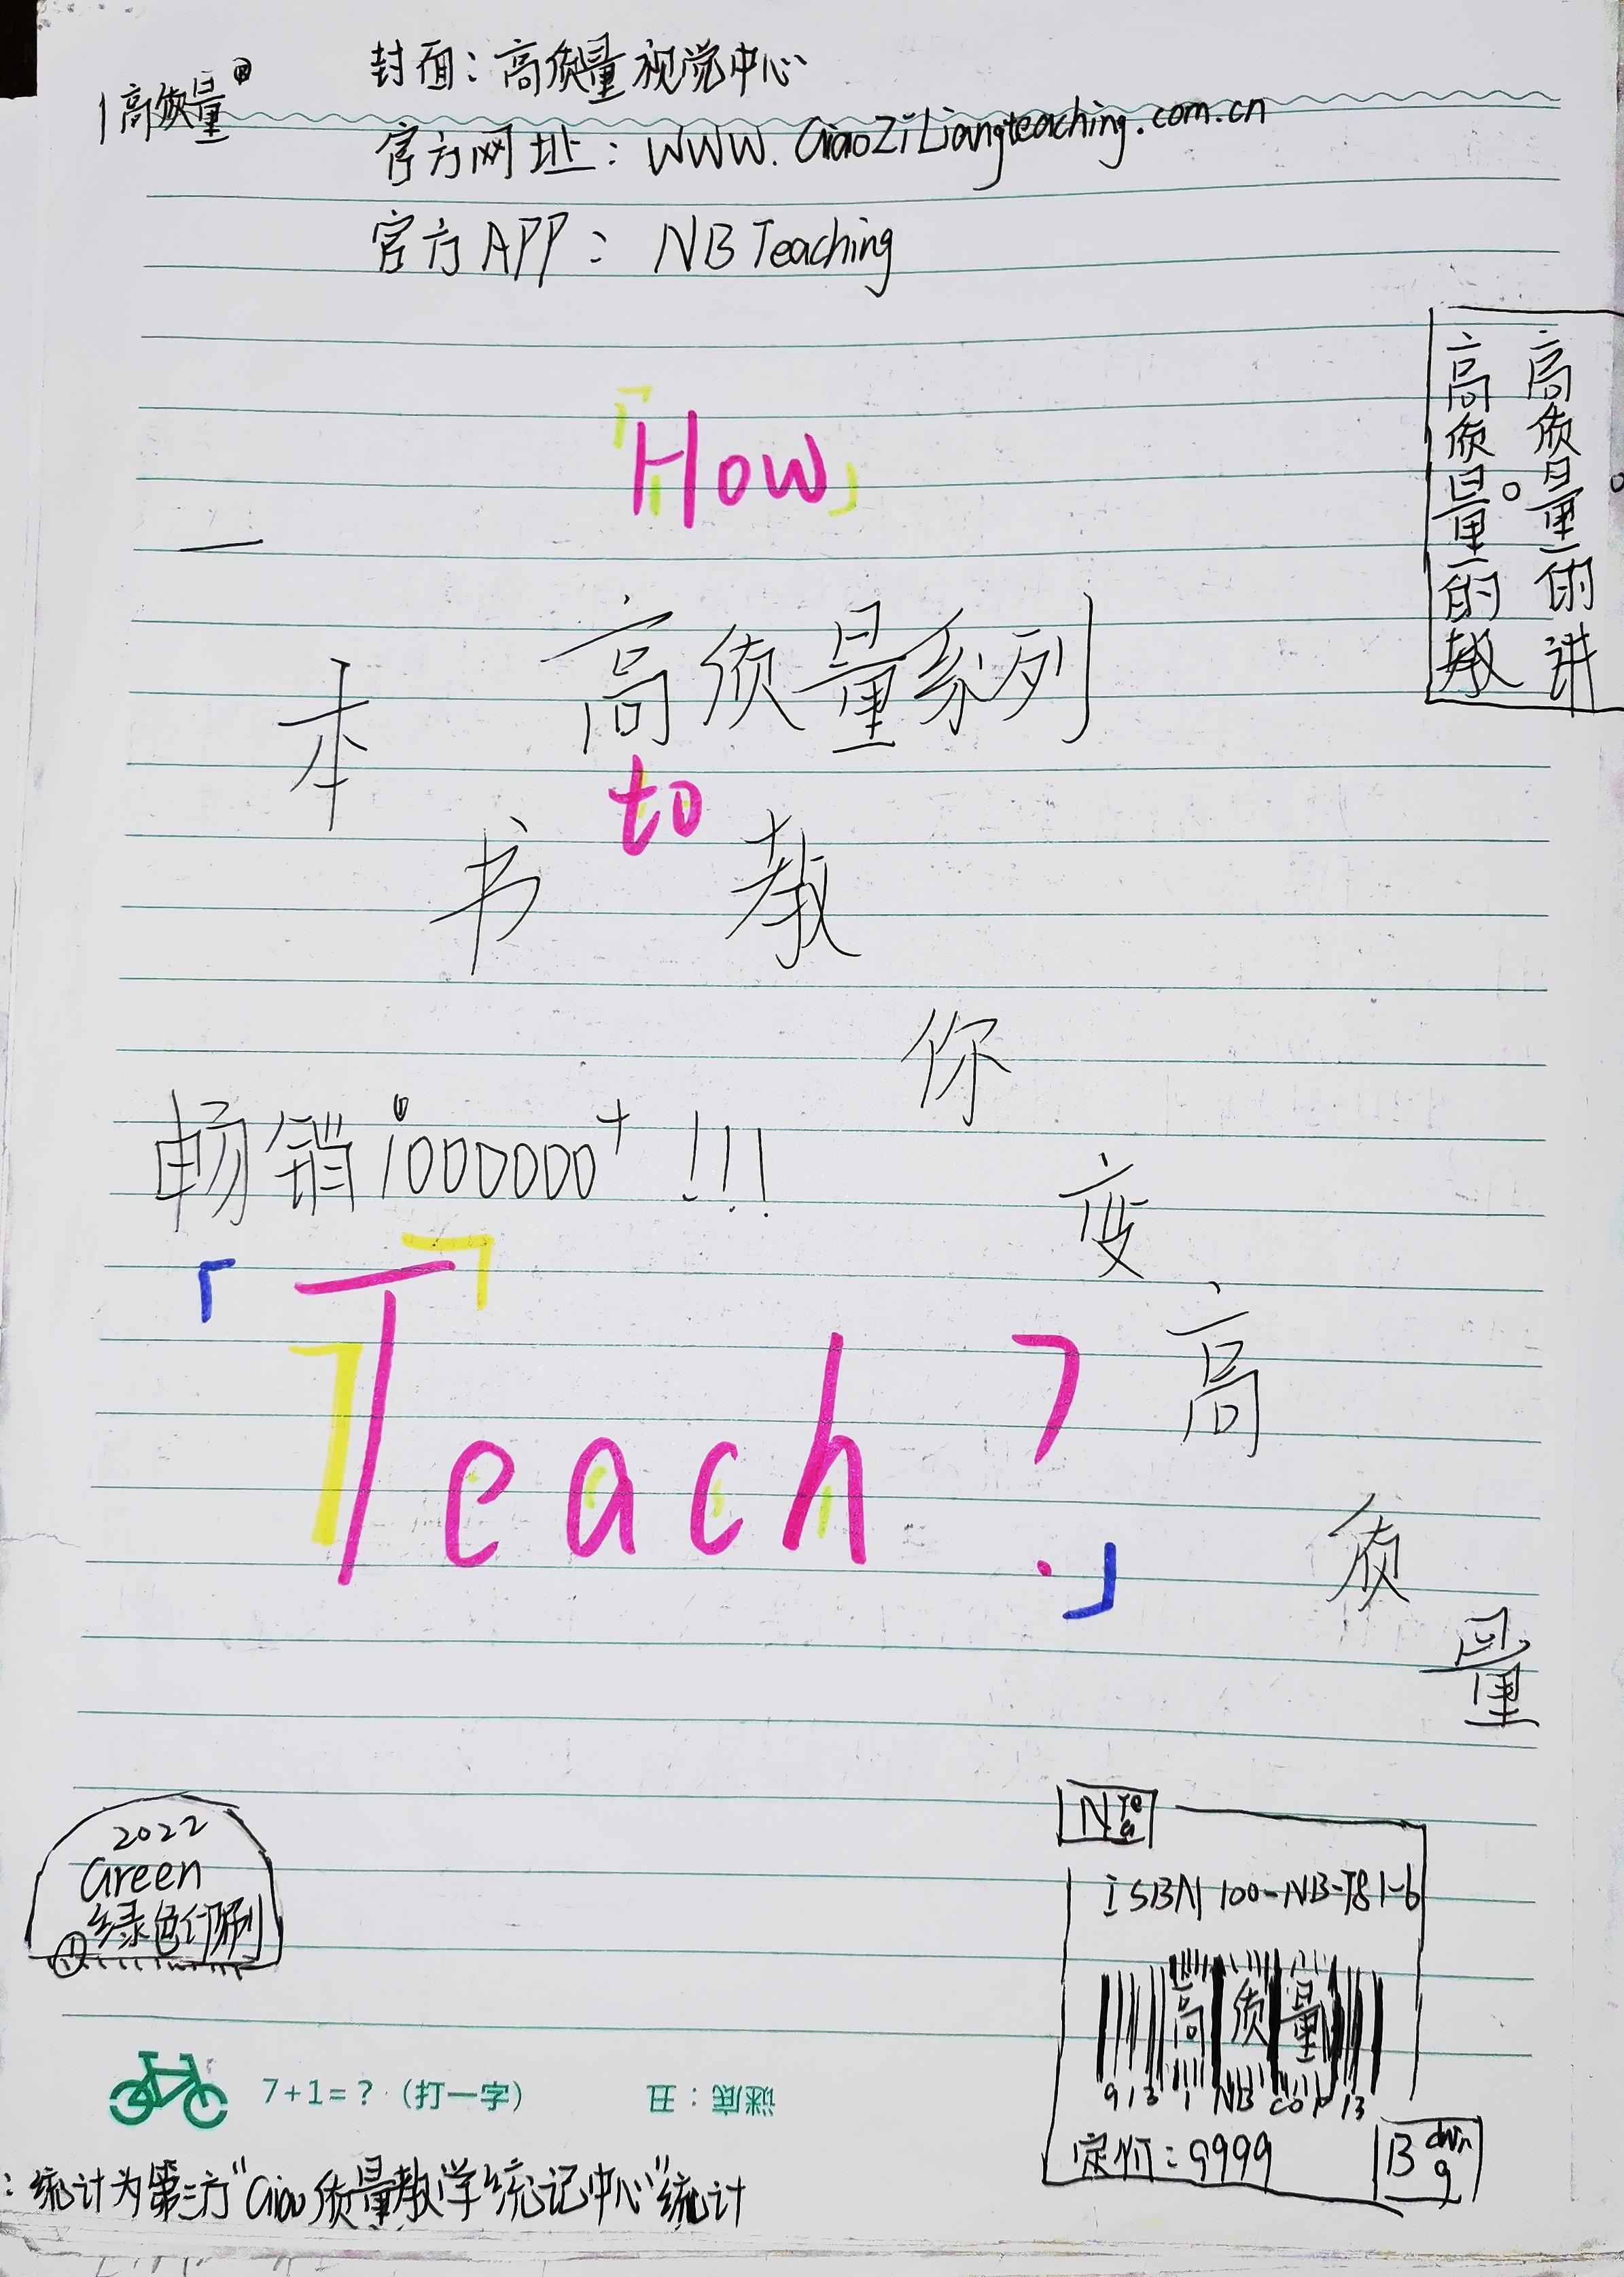 高质量®
封面：高质量视觉中心
官方网址：WWW.GiaoZiLiangteaching.com.cn
官方APP：NB Teaching
高质量的讲。
高质量的教。
「How」
高质量系列
to
一本书教你变高质量
畅销1000000+!!!
「Teach?」
2022
Green
绿色印刷
ISBN 100-NB-T81-6
高质量
913 1 NB COP 13
定价：9999
7+1=？（打一字）
谜底：旦
：统计为第三方“Giao质量教学统记中心”统计